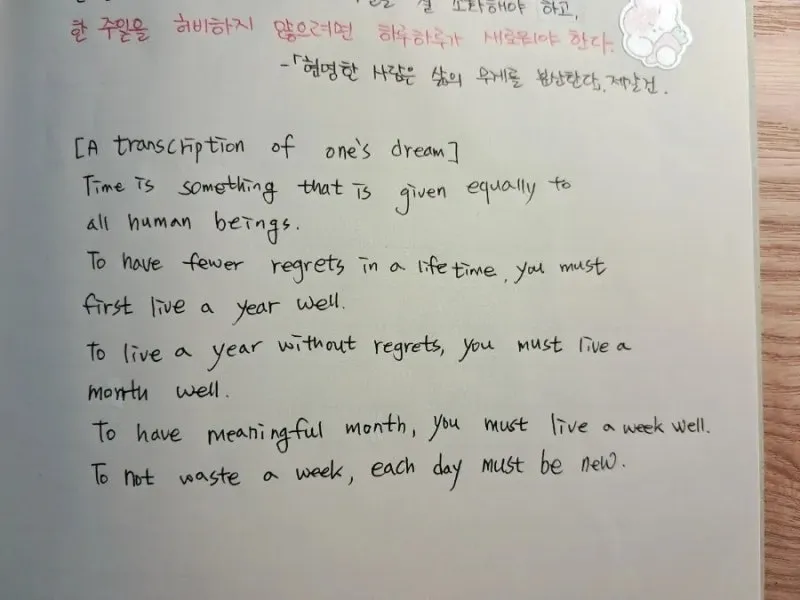 잘 소화해야 하고,
한 주일을 허비하지 않으려면 하루하루가 새로워야 한다.
-「현명한 사람은 삶의 무게를 분산한다」, 제갈건.
[A transcription of one's dream]
Time is something that is given equally to
all human beings.
To have fewer regrets in a lifetime, you must
first live a year well.
To live a year without regrets, you must live a
month well.
To have meaningful month, you must live a week well.
To not waste a week, each day must be new.